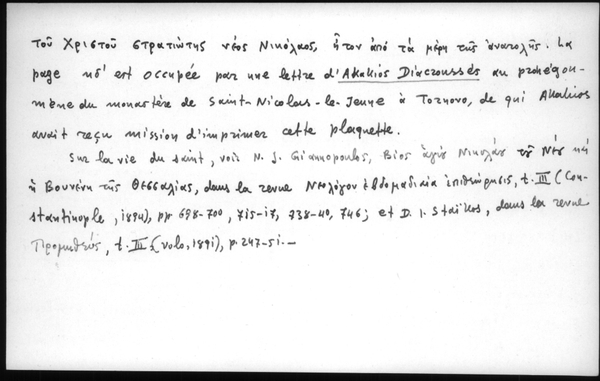 τοῦ Χριστοῦ στρατιώτης νέος Νικόλαος, ἦτον ἀπὸ τὰ μέρη τῆς ἀνατολῆς. La
page η5' est occupée par une lettre d'Akakios Diacroussès au prohégou-
mène du monastère de Saint-Nicolas-le-Jeune à Tornovo, de qui Akakios
avait reçu mission d'imprimer cette plaquette.
Sur la vie du saint, voir N. J. Giannopoulos, Βίος ἁγίου Νικολάου τοῦ Νέου
ἡ Βουναίνη τῆς Θεσσαλίας, dans la revue Νεολόγου ἑβδομαδιαία ἐπιθεώρησις, t. III (Con-
stantinople, 1894), pp 698-700, 715-17, 738-40, 746; et D. I. Staïkos, dans la revue
Προμηθεύς, t. III (Volo, 1891), p. 247-51.—